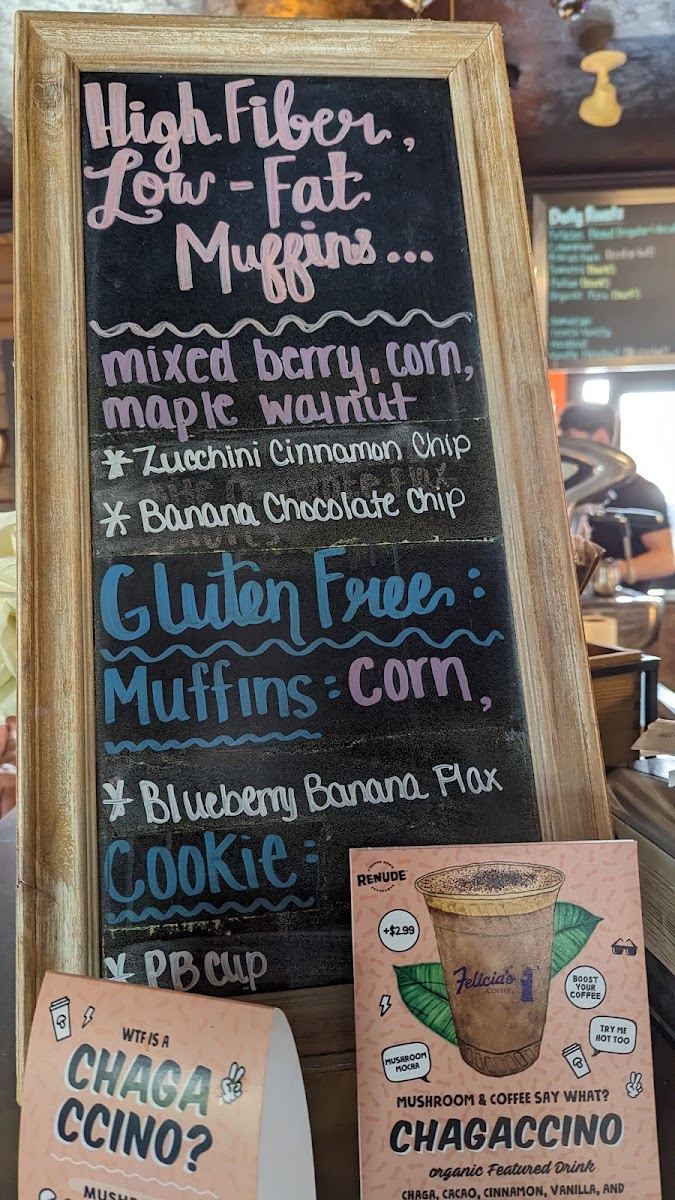 High Fiber,
Low-Fat
Muffins...
mixed berry, corn,
maple walnut
* Zucchini Cinnamon Chip
* Banana Chocolate Chip
Gluten Free:
Muffins: corn,
* Blueberry Banana Flax
Cookie:
* PB Cup
WTF IS A
CHAGA
CCINO?
RENUDE
+$2.99
Felicia's
COFFEE
BOOST
YOUR
COFFEE
TRY ME
HOT TOO
MUSHROOM
MOCHA
MUSHROOM & COFFEE SAY WHAT?
CHAGACCINO
organic Featured Drink
CHAGA, CACAO, CINNAMON, VANILLA, AND
Daily Roasts